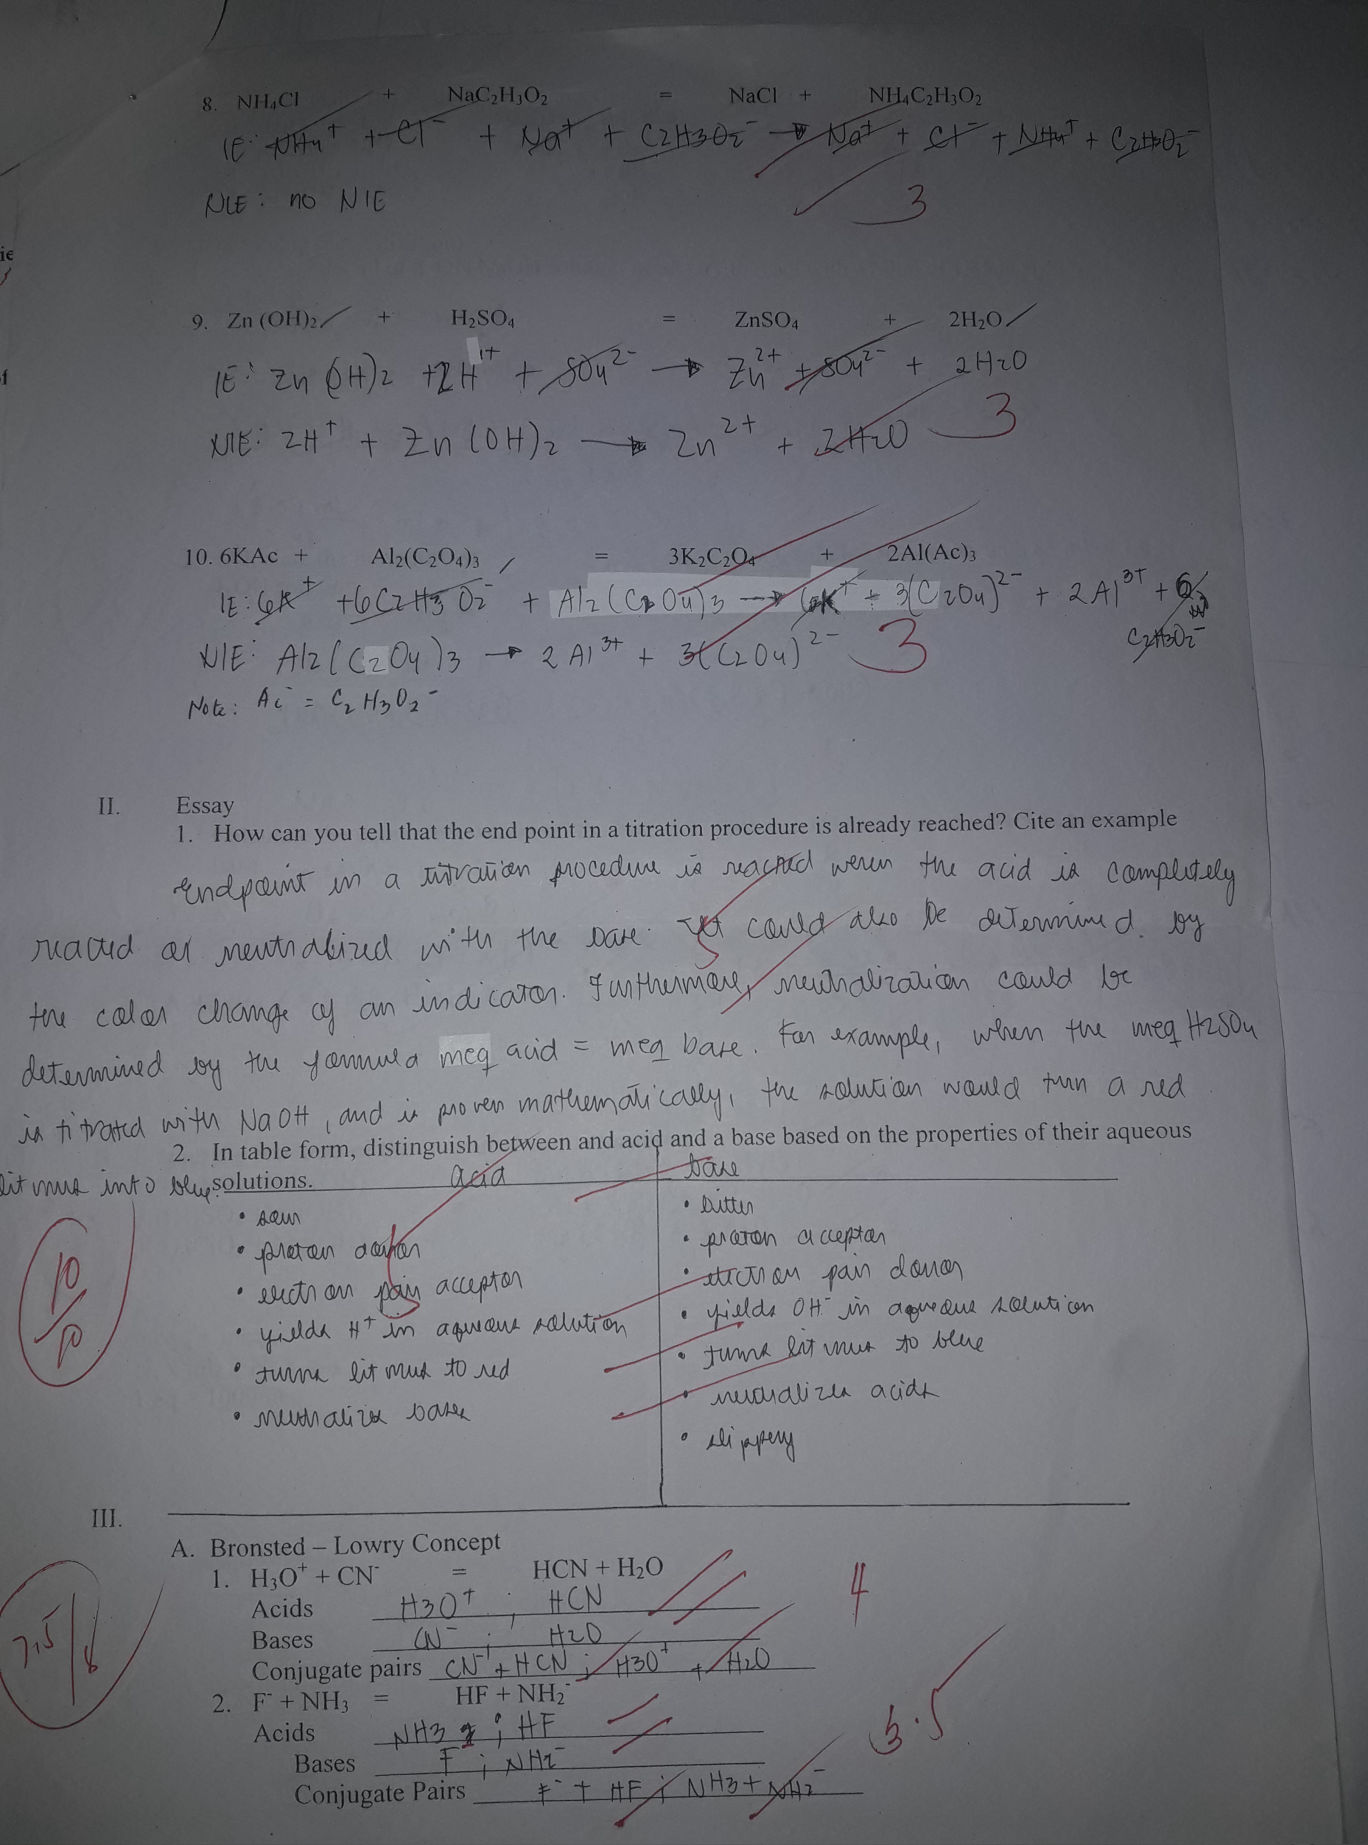 8. NH₄Cl + NaC₂H₃O₂ = NaCl + NH₄C₂H₃O₂
IE: NH₄⁺ + Cl⁻ + Na⁺ + C₂H₃O₂⁻ → Na⁺ + Cl⁻ + NH₄⁺ + C₂H₃O₂⁻
NIE: no NIE
3
ie
9. Zn (OH)₂ + H₂SO₄ = ZnSO₄ + 2H₂O
IE: Zn (OH)₂ + 2H¹⁺ + SO₄²⁻ → Zn²⁺ + SO₄²⁻ + 2H₂O
NIE: 2H⁺ + Zn (OH)₂ → Zn²⁺ + 2H₂O
3
10. 6KAc + Al₂(C₂O₄)₃ = 3K₂C₂O₄ + 2Al(Ac)₃
IE: 6K⁺ + 6C₂H₃O₂⁻ + Al₂(C₂O₄)₃ → 6K⁺ + 3(C₂O₄)²⁻ + 2Al³⁺ + 6
C₂H₃O₂⁻
NIE: Al₂(C₂O₄)₃ → 2Al³⁺ + 3(C₂O₄)²⁻
3
Note: Ac⁻ = C₂H₃O₂⁻
II. Essay
1. How can you tell that the end point in a titration procedure is already reached? Cite an example
Endpoint in a titration procedure is reached when the acid is completely
reacted or neutralized with the base. It could also be determined by
5
the color change of an indicator. Furthermore, neutralization could be
determined by the formula meq acid = meq base. For example, when the meq H₂SO₄
is titrated with NaOH, and is proven mathematically, the solution would turn a red
2. In table form, distinguish between and acid and a base based on the properties of their aqueous
litmus into blue.
solutions.
acid base
• sour • bitter
• proton donor • proton acceptor
• electron pair acceptor • electron pair donor
5
• yields H⁺ in aqueous solution • yields OH⁻ in aqueous solution
• turns litmus to red • turns litmus to blue
• neutralize bases • neutralizes acids
• slippery
10/10
III.
A. Bronsted – Lowry Concept
1. H₃O⁺ + CN⁻ = HCN + H₂O
Acids H₃O⁺ ; HCN
4
Bases CN⁻ ; H₂O
Conjugate pairs CN⁻ + HCN ; H₃O⁺ + H₂O
7.5/8
2. F⁻ + NH₃ = HF + NH₂⁻
Acids NH₃ ; HF
3.5
Bases F⁻ ; NH₂⁻
Conjugate Pairs F⁻ + HF ; NH₃ + NH₂⁻